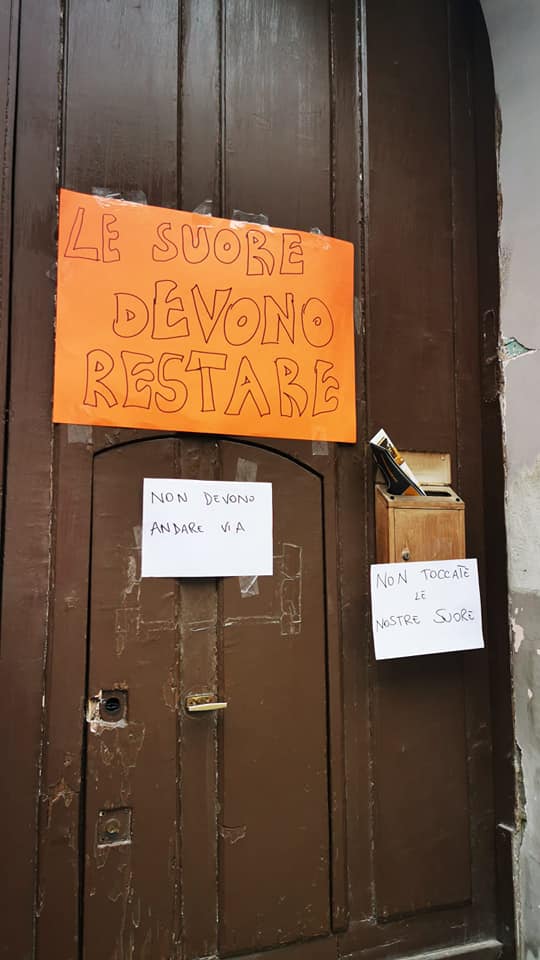 LE SUORE
DEVONO
RESTARE
NON DEVONO
ANDARE VIA
NON TOCCATE
LE
NOSTRE SUORE